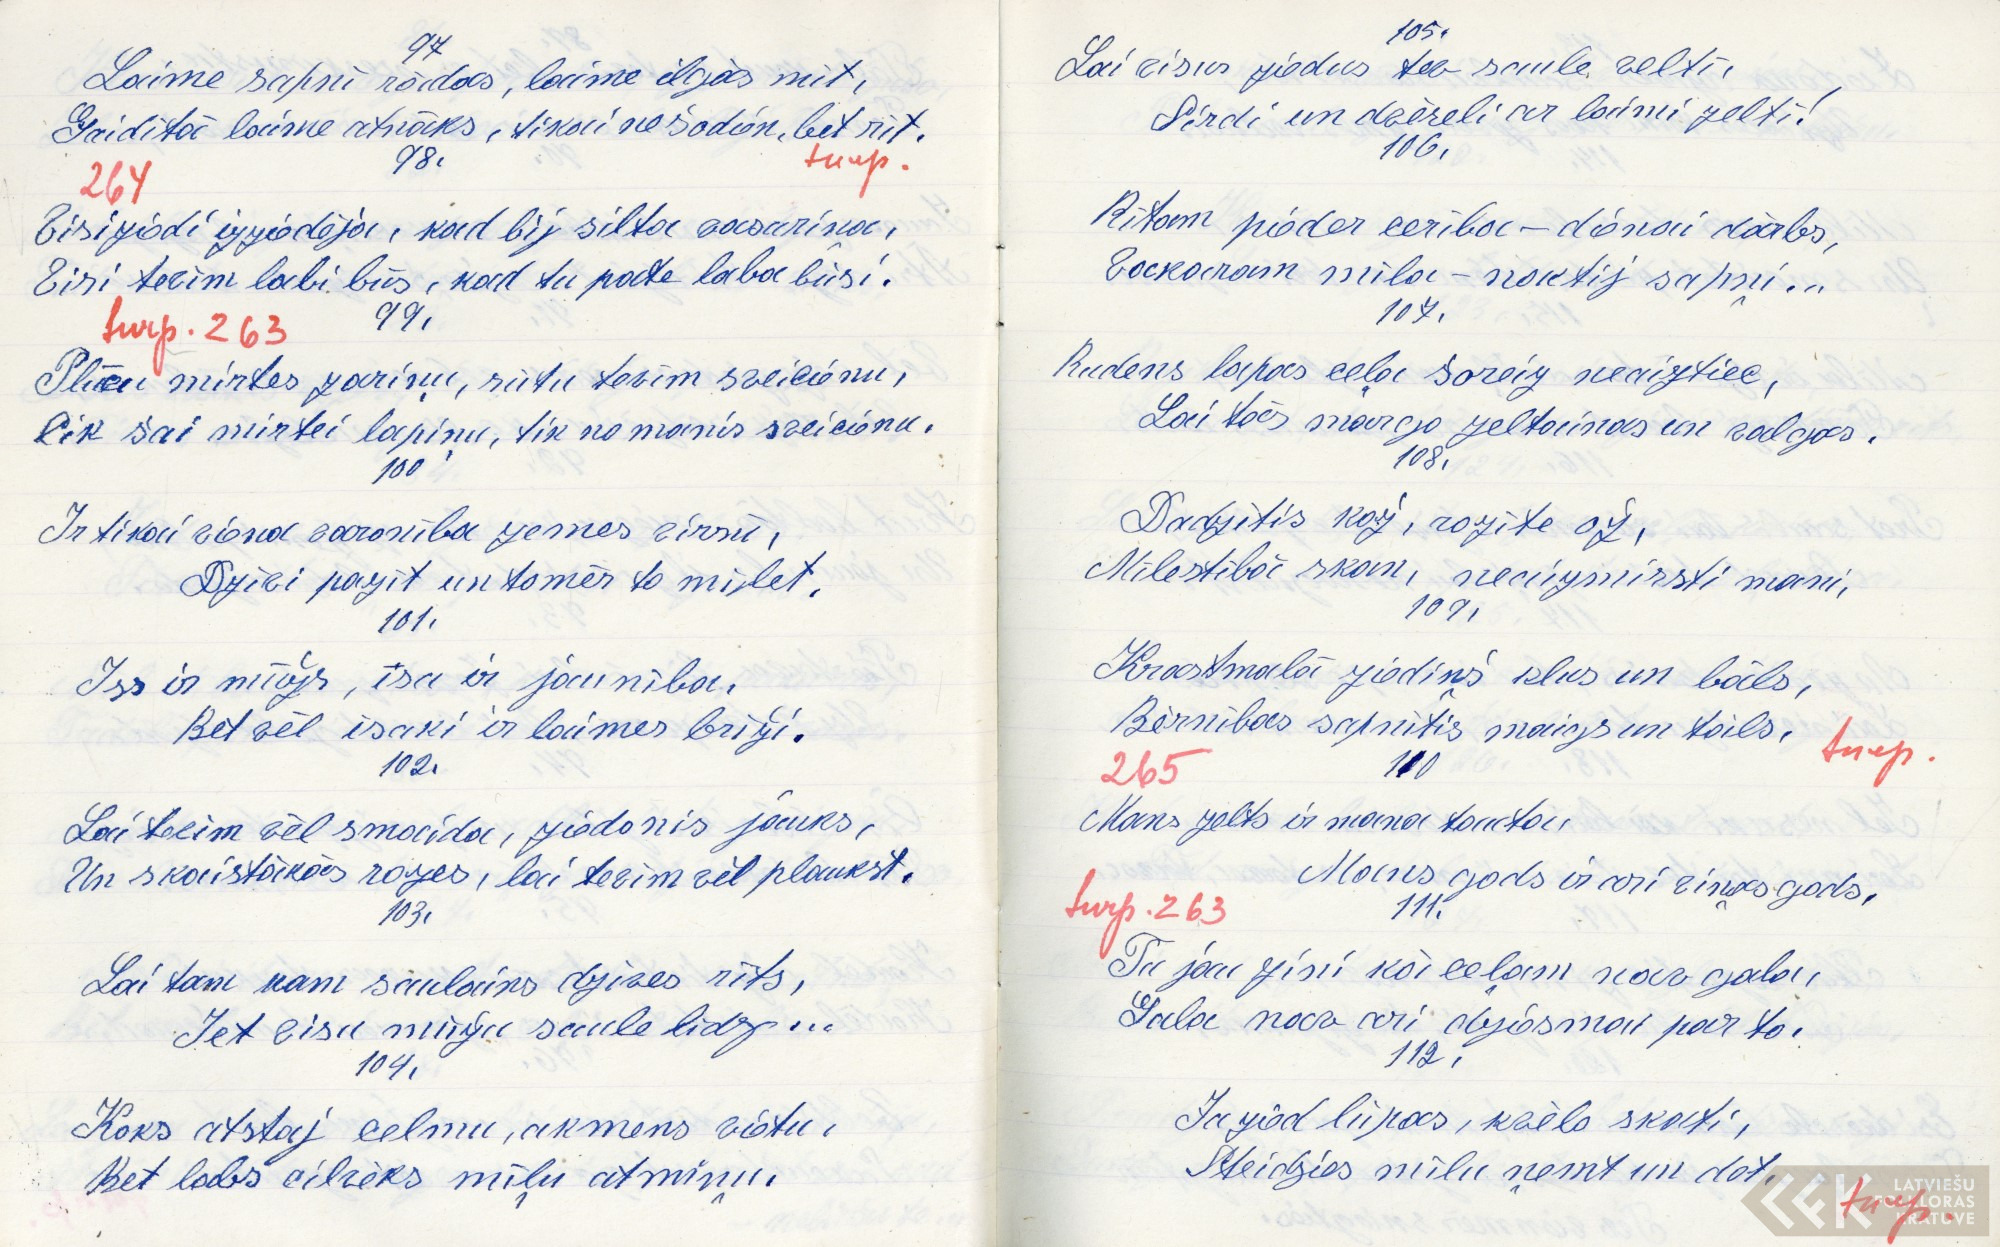 97
Laime sapnī rādas, laime ilgās mīt,
Gaidītā laime atnāks, tikai ne šodien, bet rīt.
turp.
98.
264
Visi ziedi izziedēja, kad bij silta vasariņa,
Visi tevim labi būs, kad tu pate laba būsi.
turp. 263
99.
Plūcu mirtes zariņu, sūtu tevim sveicienu,
Cik šai mirtei lapiņu, tik no manis sveicienu.
100
Ir tikai viena varonība zemes virsū,
Dzīvi pazīt un tomēr to mīlet.
101.
Iss ir mūžs, īsa ir jaunība,
Bet vēl īsaki ir laimes brīži.
102.
Lai tevim vēl smaida, ziedonis jauks,
Un skaistākās rozes, lai tevim vēl plaukst.
103.
Lai tam kam saulains dzīves rīts,
Iet visu mūžu saule līdz...
104.
Koks atstaj celmu, akmens vietu,
Bet labs cilvēks mīļu atmiņu.
105.
Lai visus ziedus tev saule velti,
Sirdi un dvēseli ar laimi zeltī!
106.
Rītam pieder cerība - dienai darbs,
Vackaram mīla - naktij sapņi...
107.
Rudens lapas ceļa šoreiz neaiztiec,
Lai tās margo zeltainas un valgas.
108.
Dadzītis kož, rozīte ož,
Mīlestībā skan, neaizmirsti mani,
109.
Krastmalā ziediņš kluss un bāls,
Bērnības sapnītis maigs un tāls.
turp.
265
110
Mans zelts ir mana tauta,
Mans gods ir arī viņas gods,
turp. 263
111.
Tu jau zini kā ceļam nav gala,
Gala nav arī dziesmai par to.
112.
Ja zied lūpas, kvēlo skati,
Steidzies mīlu ņemt un dot.
turp.
LATVIEŠU
FOLKLORAS
KRATUVE